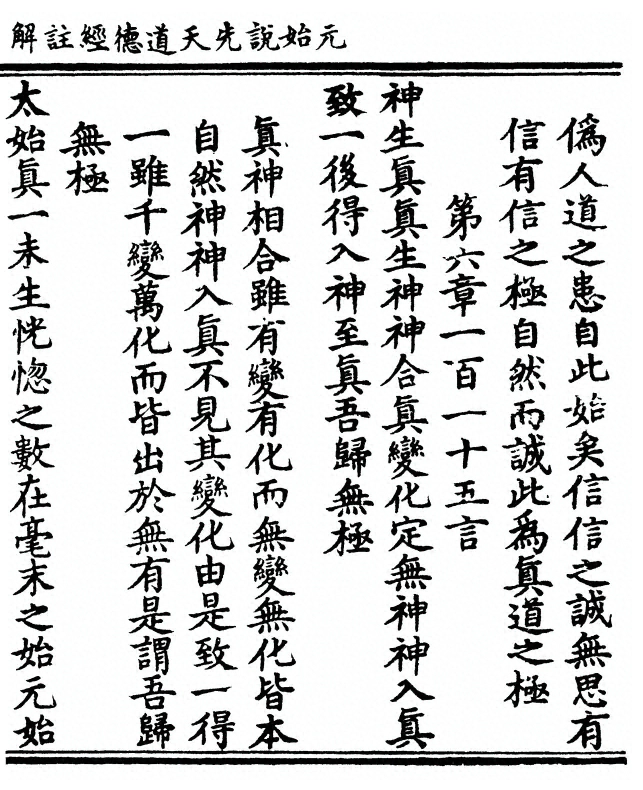 元始說先天道德經註解
僞人道之患自此始矣信信之誠無思有
信有信之極自然而誠此爲眞道之極
第六章一百一十五言
神生眞眞生神神合眞變化定無神神入眞
致一後得入神至眞吾歸無極
眞神相合雖有變有化而無變無化皆本
自然神神入眞不見其變化由是致一得
一雖千變萬化而皆出於無有是謂吾歸
無極
太始眞一未生恍惚之數在毫末之始元始